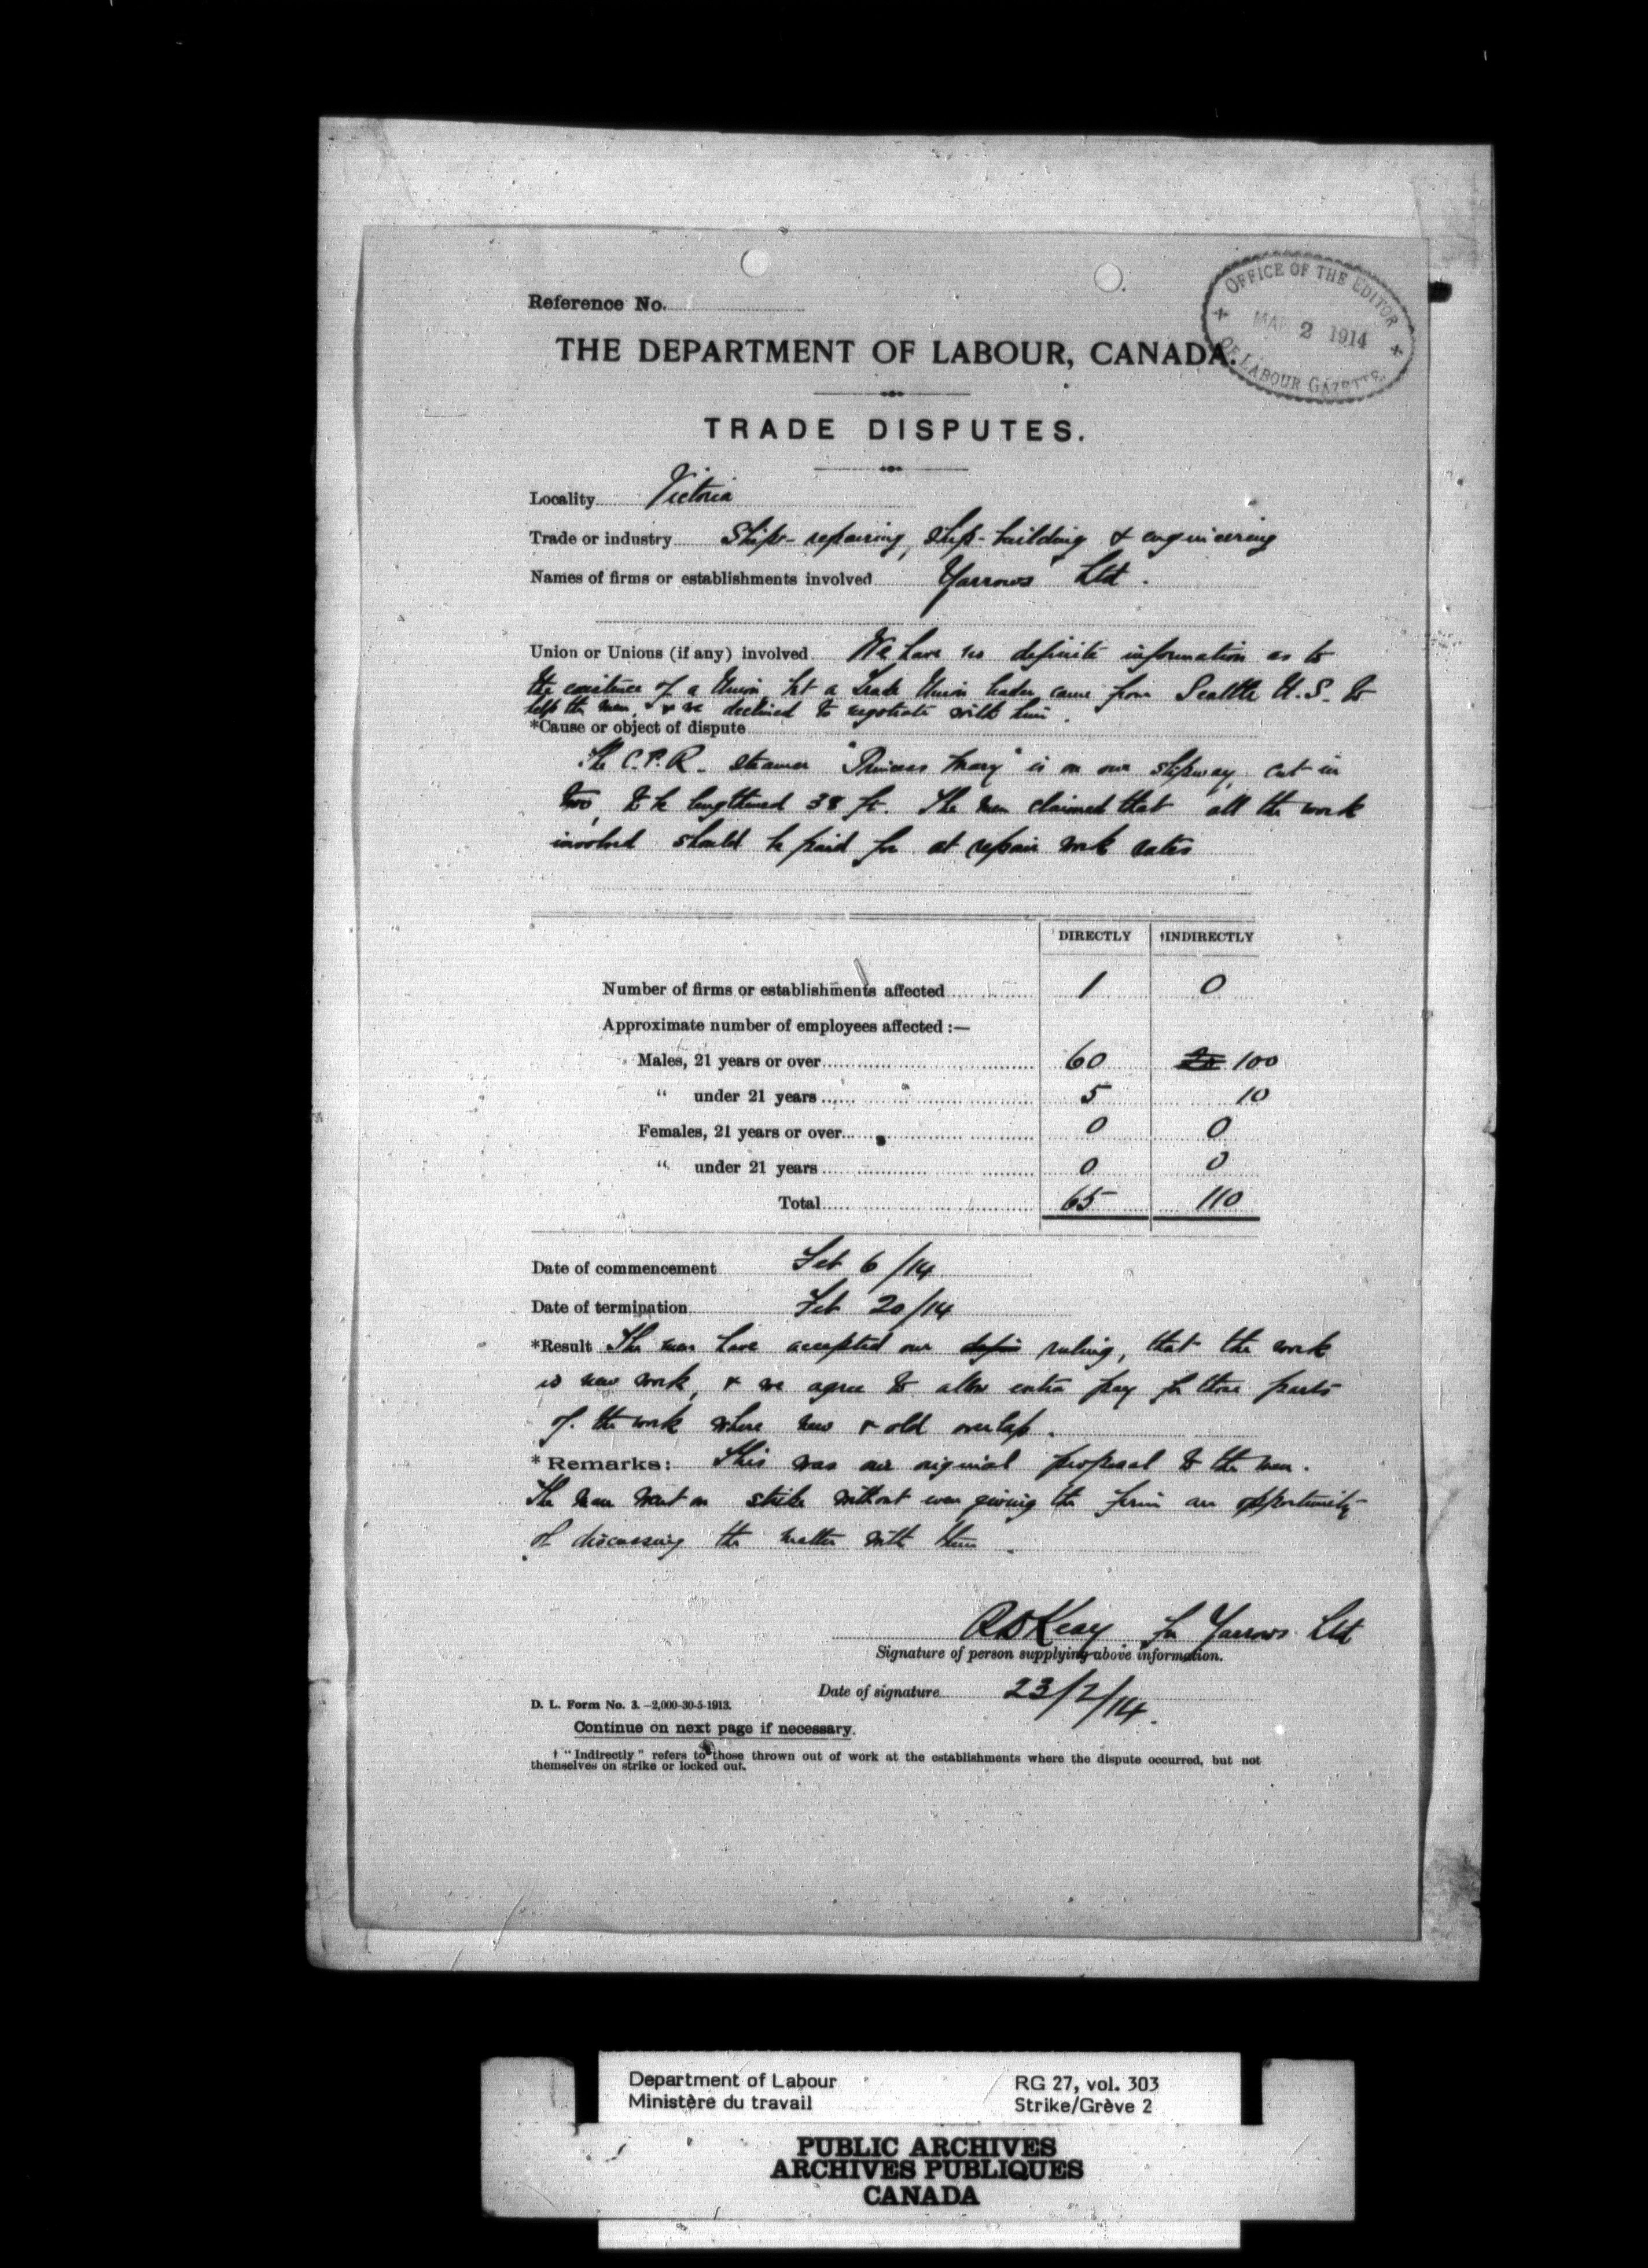 OFFICE OF THE EDITOR
MAR 2 1914
OF LABOUR GAZETTE
Reference No.
THE DEPARTMENT OF LABOUR, CANADA.
TRADE DISPUTES.
Locality Victoria
Trade or industry Ship-repairing, ship-building & engineering
Names of firms or establishments involved Yarrows Ltd.
Union or Unions (if any) involved We have no definite information as to
the existence of a Union, but a Trade Union leader came from Seattle U.S. to
help the men, & we declined to negotiate with him.
*Cause or object of dispute
The C.P.R. steamer "Princess Mary" is on our slipway, cut in
two, to be lengthened 38 ft. The men claimed that all the work
involved should be paid for at repair work rates
DIRECTLY †INDIRECTLY
Number of firms or establishments affected 1 0
Approximate number of employees affected :—
Males, 21 years or over 60 20 100
" under 21 years 5 10
Females, 21 years or over 0 0
" under 21 years 0 0
Total 65 110
Date of commencement Feb 6/14
Date of termination Feb 20/14
*Result The men have accepted our ruling, that the work
is new work, & we agree to allow extra pay for those parts
of the work where new & old overlap.
*Remarks: This was our original proposal to the men.
The men went on strike without even giving the firm an opportunity
of discussing the matter with them.
Keay for Yarrows Ltd
Signature of person supplying above information.
Date of signature 23/2/14.
D. L. Form No. 3.—2,000-30-5-1913.
Continue on next page if necessary.
† "Indirectly" refers to those thrown out of work at the establishments where the dispute occurred, but not
themselves on strike or locked out.
Department of Labour RG 27, vol. 303
Ministère du travail Strike/Grève 2
PUBLIC ARCHIVES
ARCHIVES PUBLIQUES
CANADA